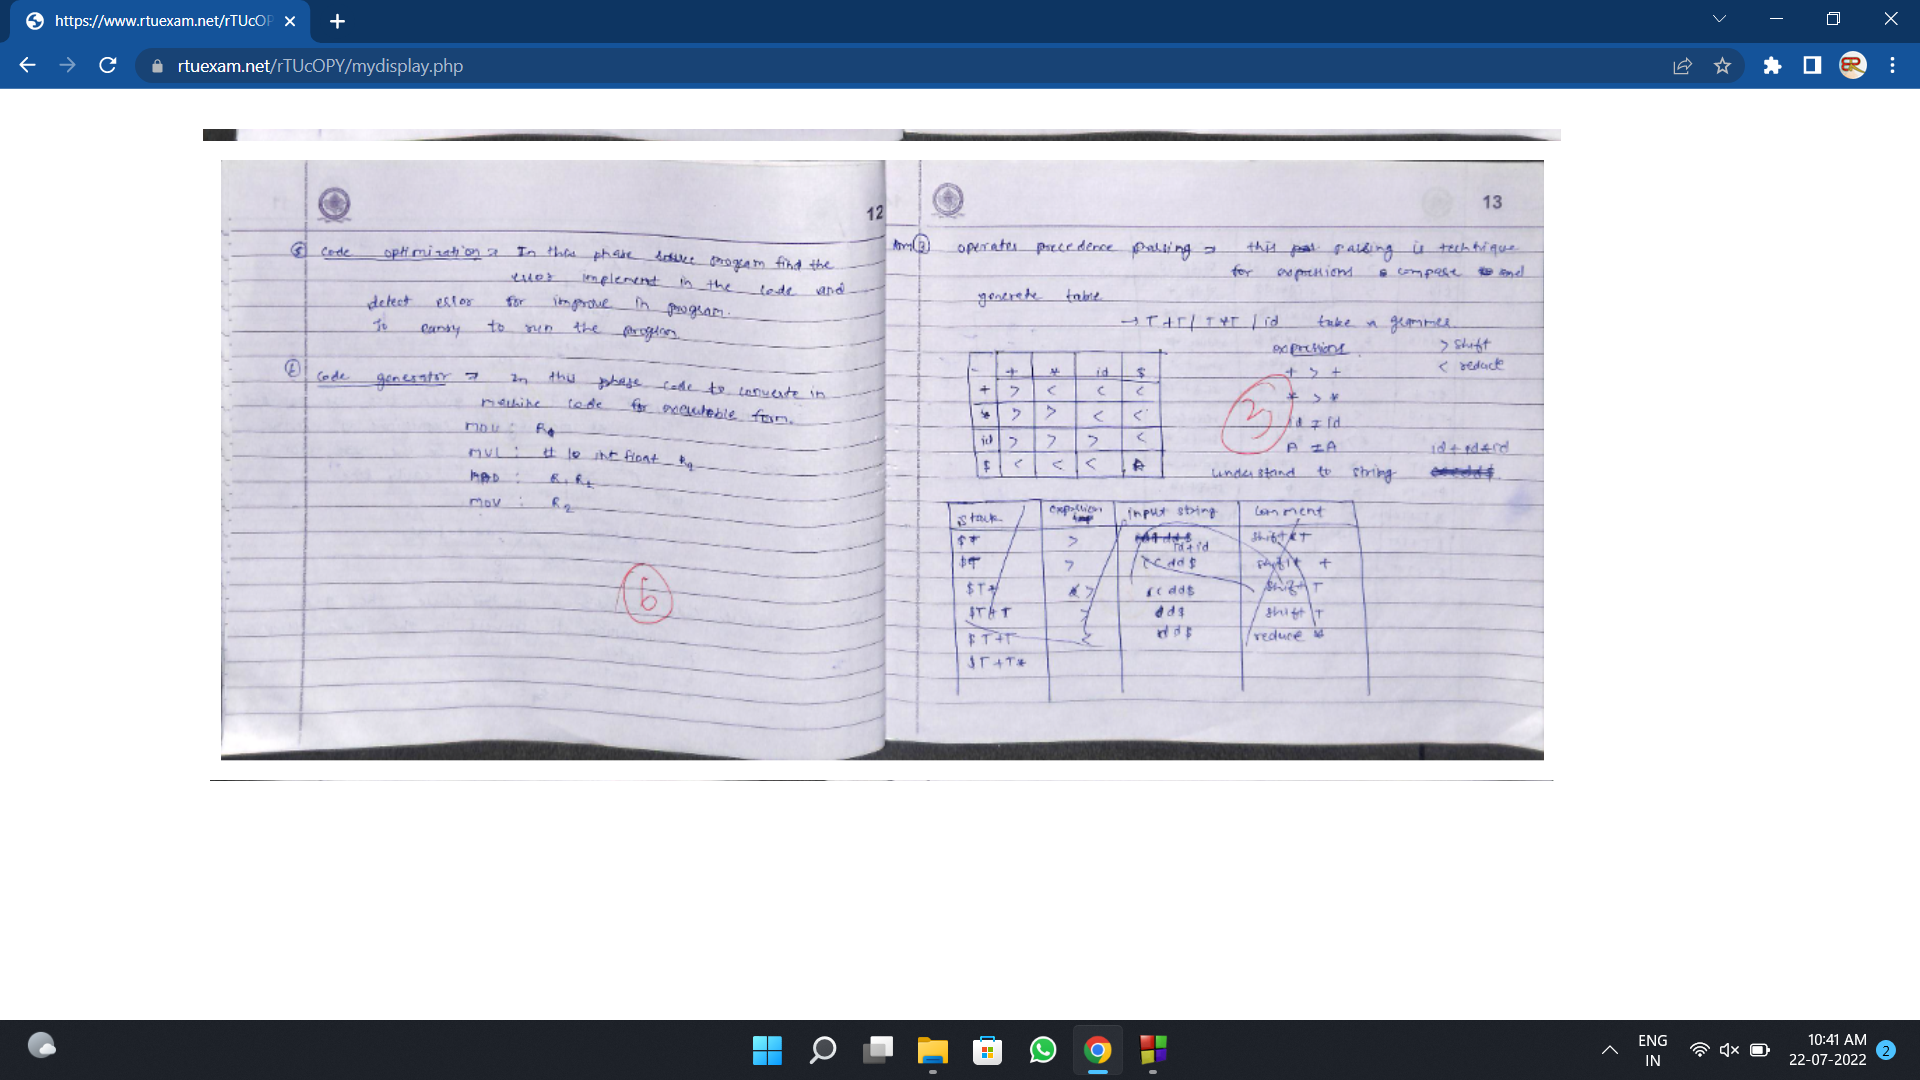 https://www.rtuexam.net/rTUcOP
rtuexam.net/rTUcOPY/mydisplay.php
12
5 code optimization → In this phase source program find the
error implement in the code and
detect error for improve in program.
To to run the program
6 code generator → In this phase code to converte in
machine code for executable form.
MOV :
MUL : # 10 int float R2
ADD : R, R1
MOV : R2
6
13
Ans 3 operates precedence parsing → this parsing is techtique
for expressions compare and
generate table
→ T+T / T*T / id take a
expressions > shift
+ > + < reduce
* > *
id ≠ id
A ≠ A id + id * id
understand to string
3
- + * id $
+ > < < <
* > > < <
id > > > <
$ < < < A
stack expression input string comment
$* > id+id shift T
$T > dd$ shift +
$T* > dd$ shift T
$T*T > dd$ shift T
$T+T < dd$ reduce *
$T+T*
ENG
IN
10:41 AM
22-07-2022
2